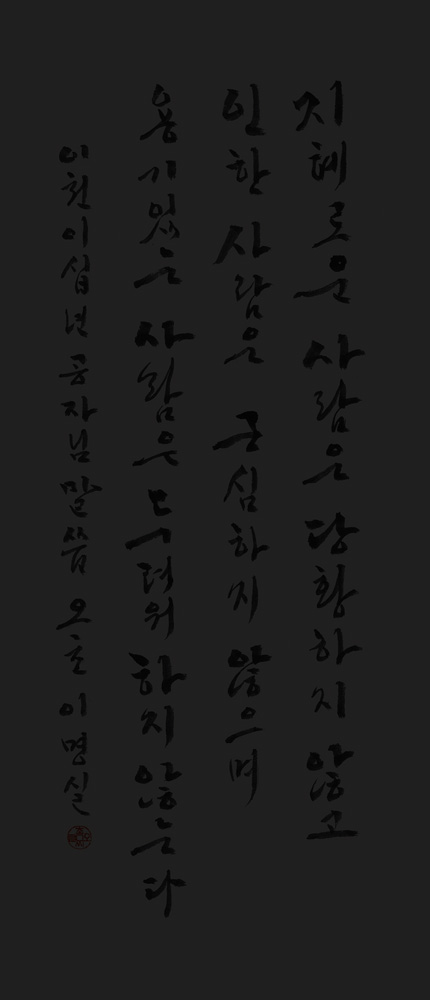 지혜로운 사람은 당황하지 않고
인한 사람은 근심하지 않으며
용기있는 사람은 두려워 하지 않는다
이천이십년 공자님 말씀 오촌 이명실